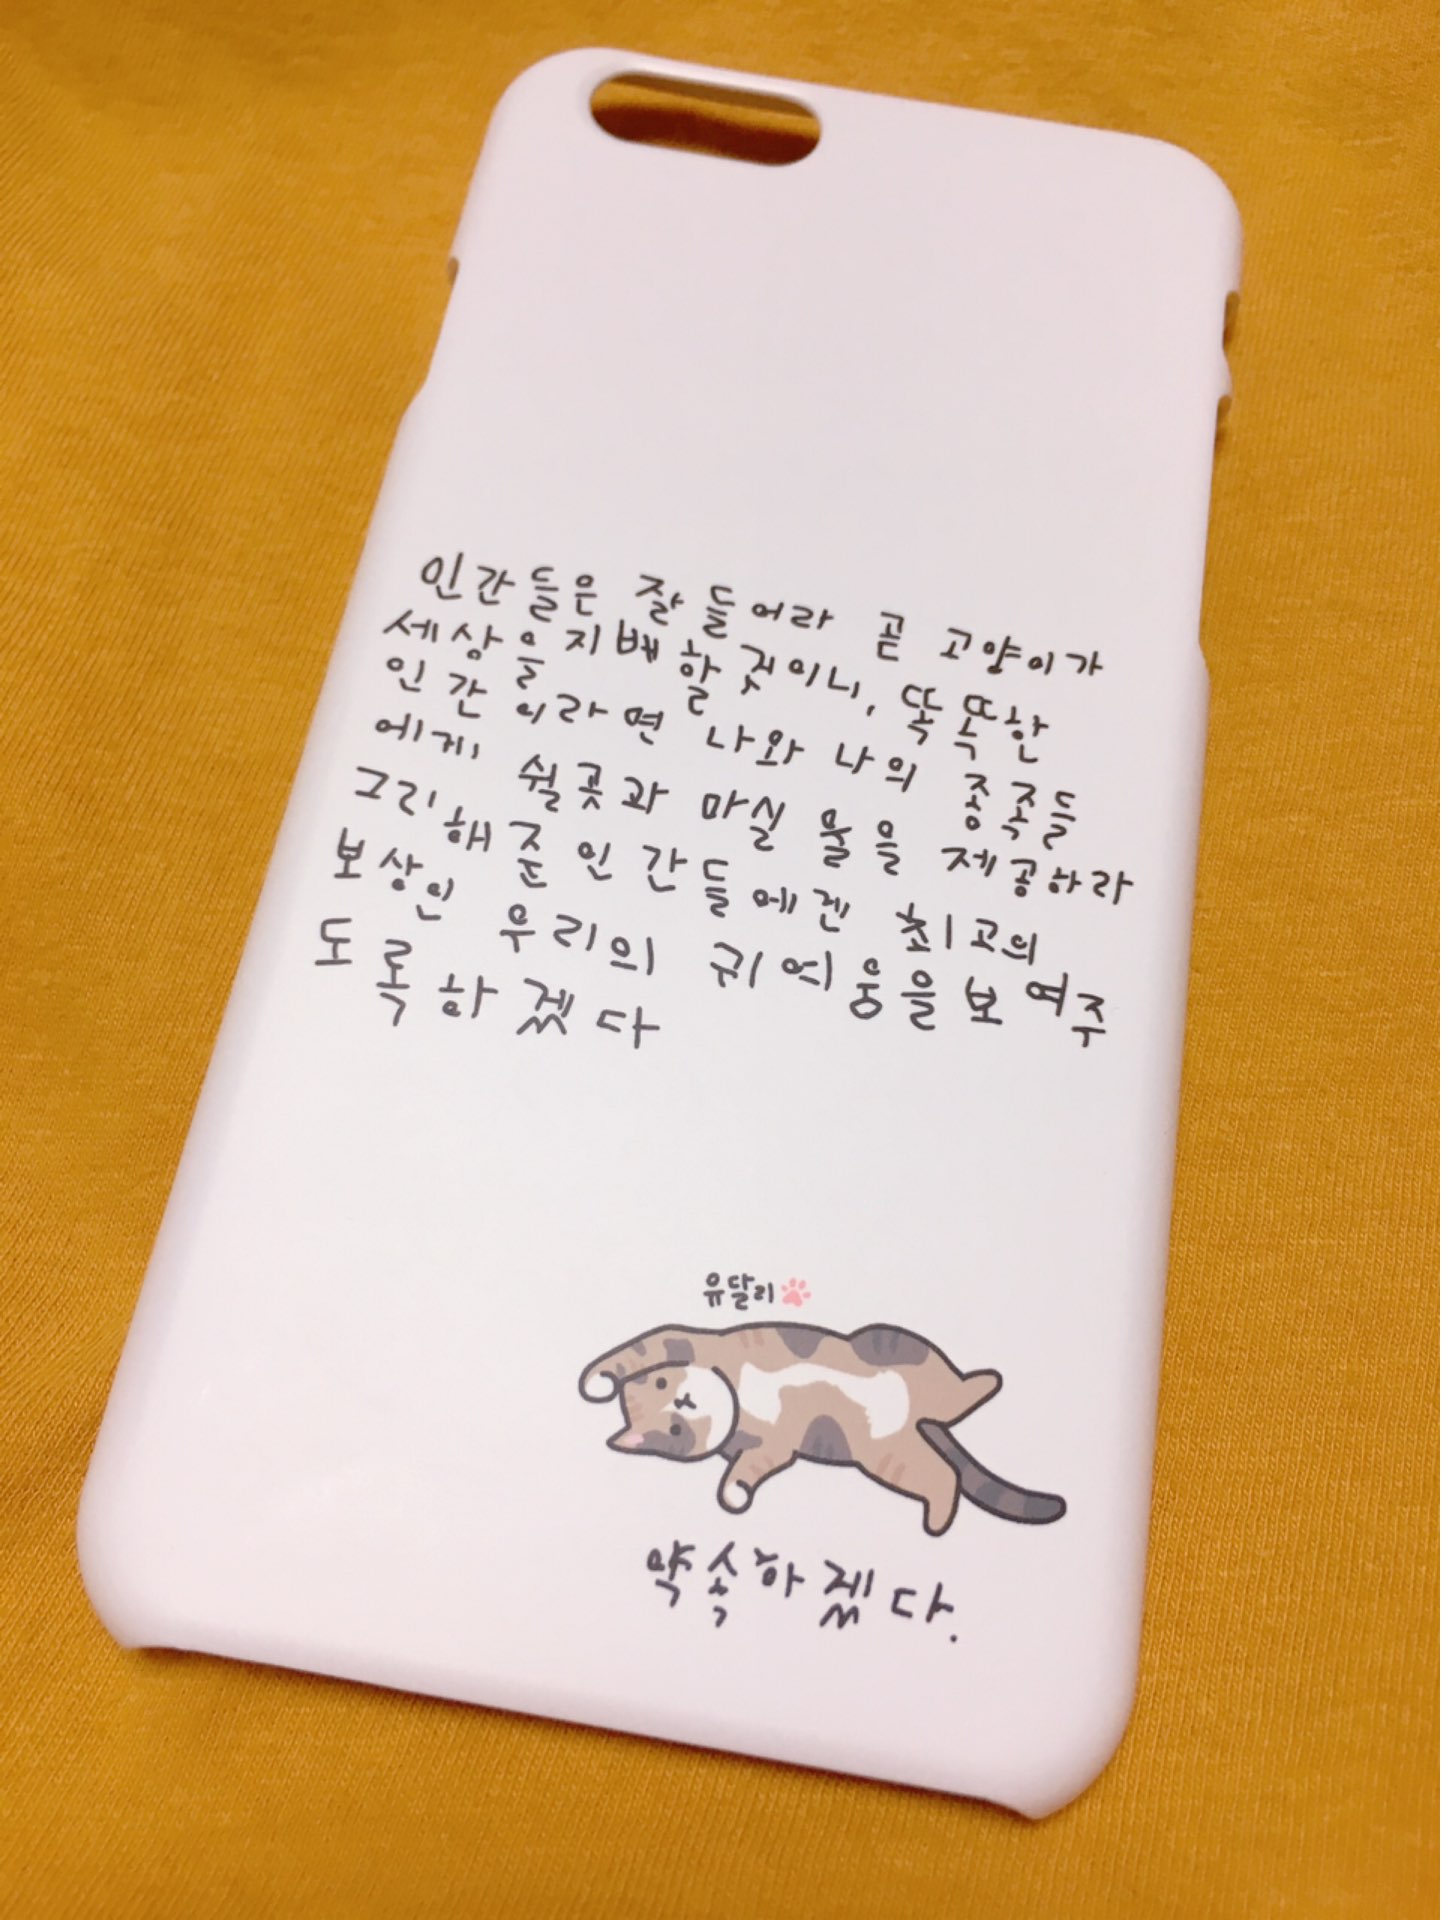 인간들은 잘 들어라 곧 고양이가
세상을 지배할 것이니, 똑똑한
인간이라면 나와 나의 종족들
에게 쉴곳과 마실 물을 제공하라
그리해준 인간들에겐 최고의
보상인 우리의 귀여움을 보여주
도록 하겠다
유달리
약속하겠다.